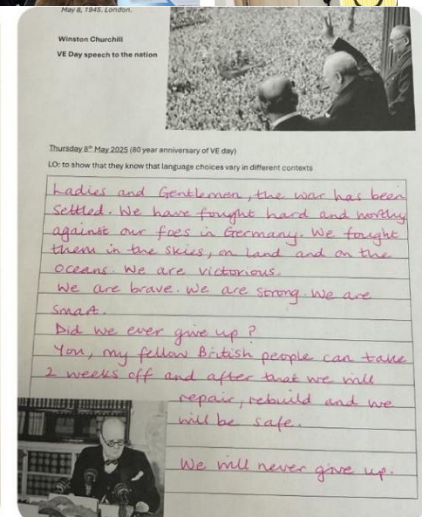 May 8, 1945, London.
Winston Churchill
VE Day speech to the nation
Thursday 8th May 2025 (80 year anniversary of VE day)
LO: to show that they know that language choices vary in different contexts
Ladies and Gentlemen, the war has been
settled. We have fought hard and worthy
against our foes in Germany. We fought
them in the skies, on land and on the
oceans. We are victorious.
We are brave. We are strong. We are
smart.
Did we ever give up?
You, my fellow British people can take
2 weeks off and after that we will
repair, rebuild and we
will be safe.
We will never give up.